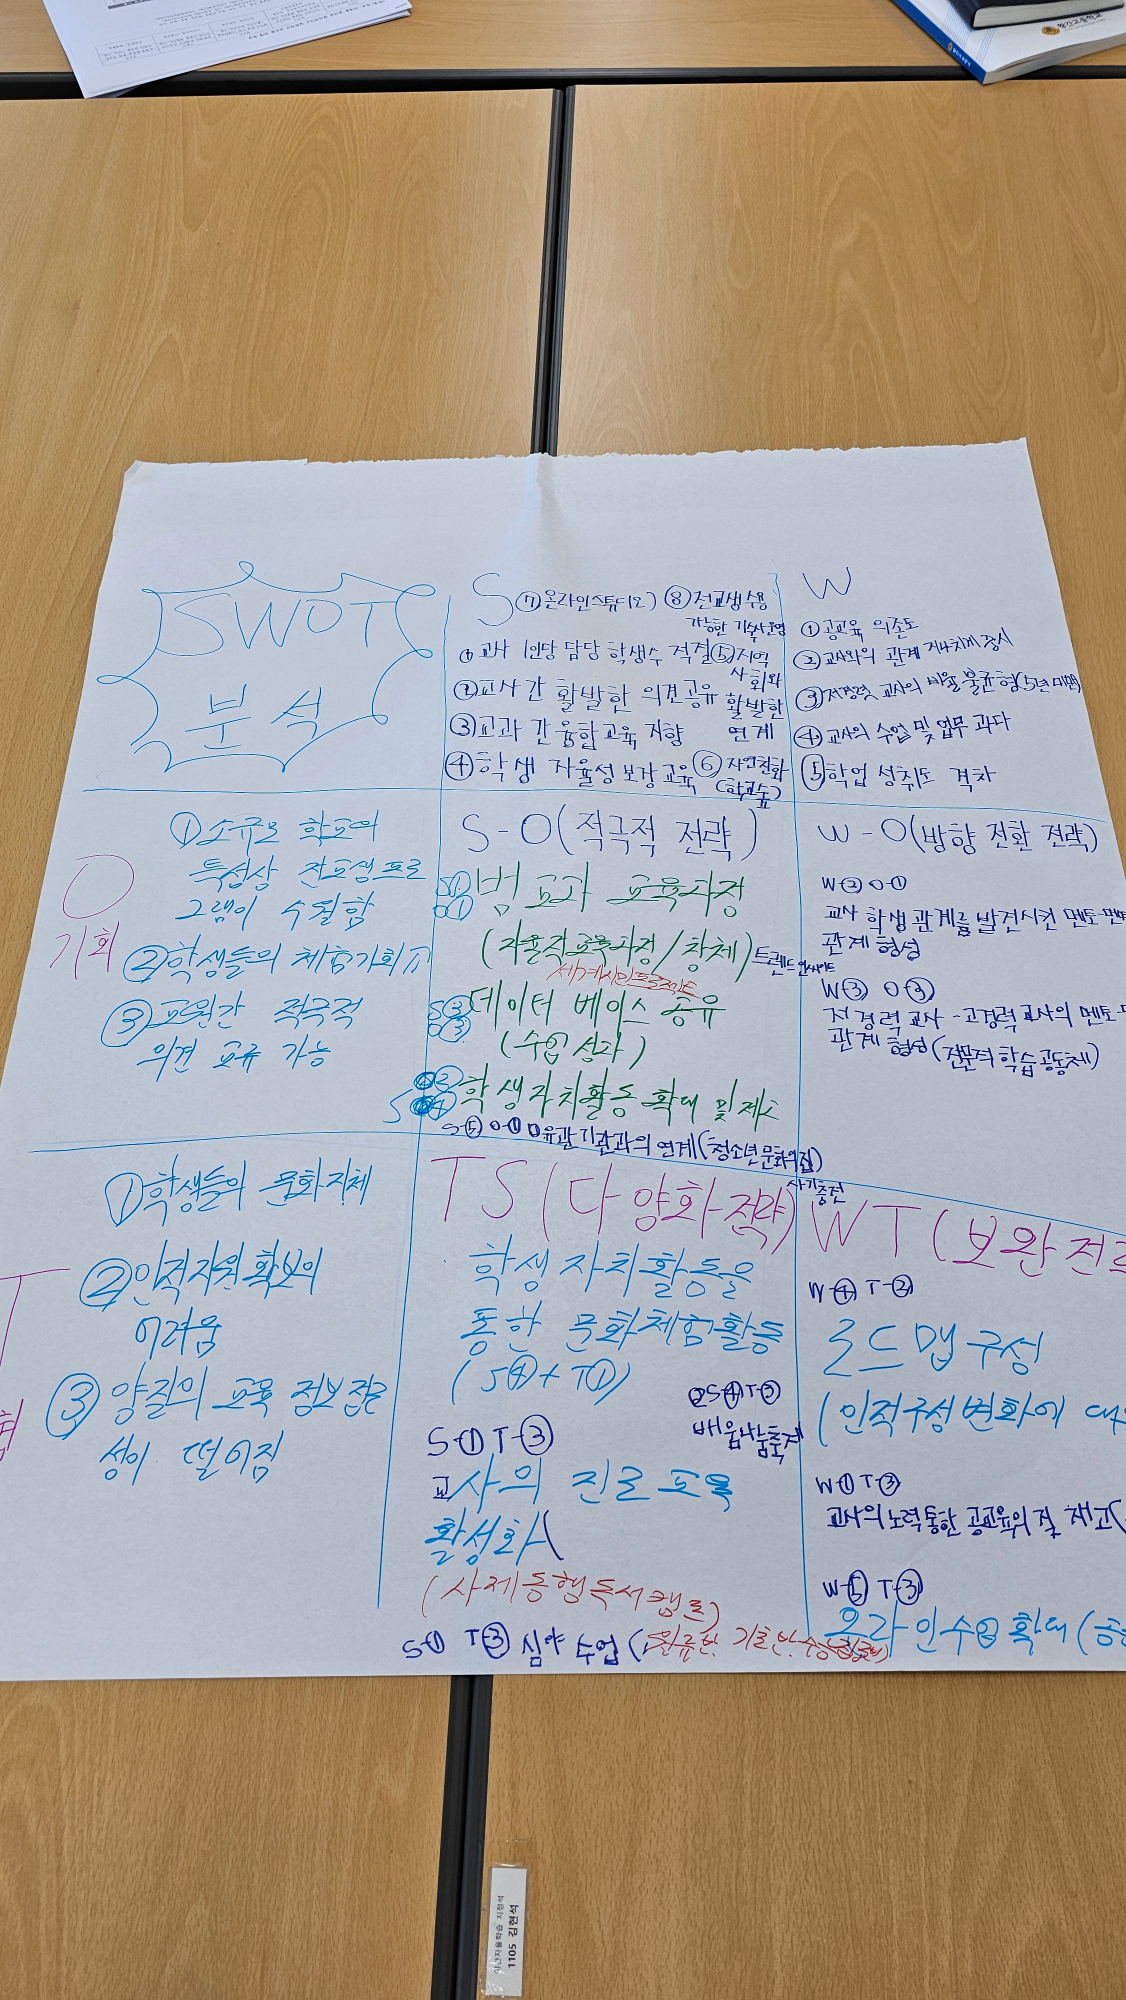 황간고등학교
SWOT
분석
S
⑦온라인스튜디오) ⑧전교생 수용
가능한 기숙사 운영
① 교사 1인당 담당 학생수 적절
②교사 간 활발한 의견공유
③교과 간 융합교육 지향
④학생 자율성 보장 교육
⑤지역
사회와
활발한
연계
⑥자연친화
(학교숲)
W
①공교육 의존도
②교사와의 관계 지나치게 중시
③저경력 교사의 비율 불균형(5년 미만
④교사의 수업 및 업무 과다
⑤학업 성취도 격차
O
기회
①소규모 학교의
특성상 전교생 프로
그램이 수월함
②학생들의 체험기회 ↑
③교원간 적극적
의견 교류 가능
S-O(적극적 전략)
S①
O① 범교과 교육과정
(자율적교육과정/창체) 트렌드 인사이트
세계시민프로젝트
S③
O③ 데이터 베이스 공유
(수업 성과)
S ④ 학생자치활동 확대 및
S-⑤ O-① 유관기관과의 연계(청소년문화의집)
W-O(방향 전환 전략)
W-② O-①
교사 학생 관계를 발전시켜 멘토-멘
관계 형성
W③ O③
저경력교사-고경력교사의 멘토-
관계 형성(전문적학습공동체)
T
협
①학생들의 문화지체
②인적자원 확보의
어려움
③양질의 교육 정보 접근
성이 떨어짐
TS(다양화 전략)
학생 자치활동을
통한 문화체험활동
(S④+T①)
S④T③
배움나눔축제
S-① T-③
교사의 진로교육
활성화(
(사제동행독서캠프)
S-① T-③ 심야 수업( 기초반.
WT(보완전
W-④ T-②
로드맵 구성
(인적구성 변화에 대
W-① T③
교사의 노력 통한 공교육의 질 재고(
W-⑤ T-③
온라인수업 확대(
야간자율학습 지정석
1105 김현석